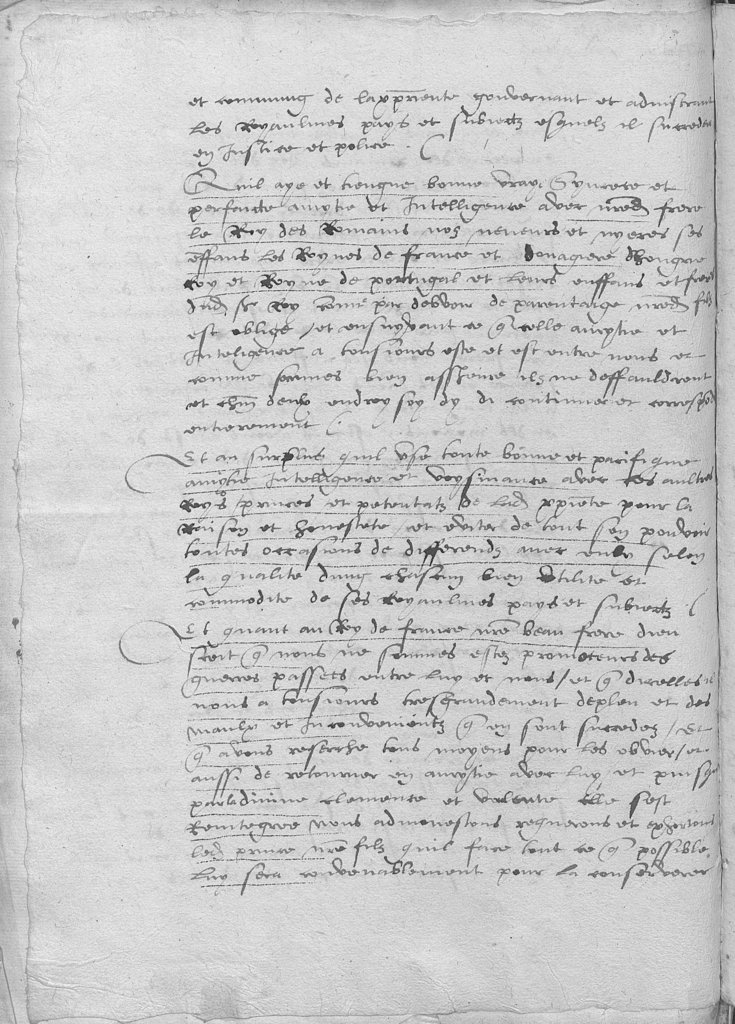 et commung de la xp̄riente gouvernant et admistrant
les Royaulmes pays et subiectz esquelz il succedera
en Justice et police . (
Quil aye et tiengne bonne vraye Syncere et
perfaicte amytie et Intelligence avec nred frere
le Roy des Romains noz neveurs et nyeces ses
effans les Roynes de france et douagiere dhongrie
Roy et Royne de portugal et leurs enffans et frere
dud sr Roy Come par debvoir de parentaige nred filz
est oblige / et ensuyvant ce q̄ celle amytie et
Inteligence a tousiours este et est entre nous et
comme sommes bien assheure ilz ne deffauldront
et chūn deulx endroy soy dy continuer et correspōd
entierement (
Et au surplus quil use toute bonne et pacifique
amytie Intelligence et voysinance avec les aultres
Roys princes et potentatz de lad xp̄iente pour la
Raison et honestete / et eviter de tout son pouvoir
toutes occasions de differendz avec eulx selon
la qualite dung chascun bien Utilite et
commodite de ses Royaulmes pays et subiectz (
Et quant au Roy de france nr̄e beau frere dieu
scait q̄ nous ne sommes estez promoteurs des
guerres passees entre luy et nous / et q̄ dicelles il
nous a tousiours tresgrandement depleu et des
maulx et Inconvenientz q̄ en sont succedez / Et
q̄ avons reserche tous moyens pour les obvier / et
aussi de retourner en amytie avec luy et puisq̄
par la divine clemence et volente elle s'est
Reintegree nous admonestons requerons et exhortons
led prince nr̄e filz quil face tout ce q̄ possible
luy sera convenablement pour la conserver